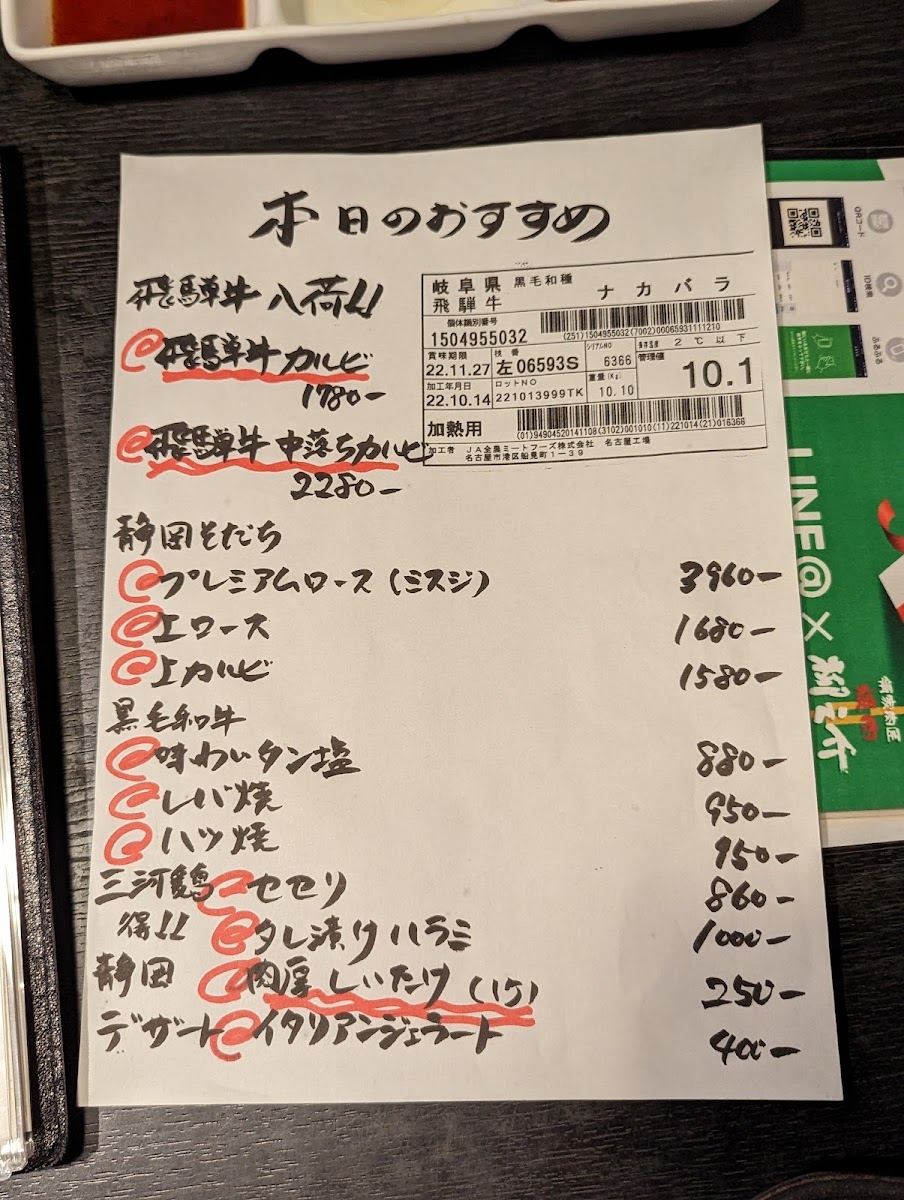 本日のおすすめ
飛騨牛 入荷!!
飛騨牛カルビ
1780-
飛騨牛 中落ちカルビ
2280-
岐阜県 黒毛和種 ナカバラ
飛騨牛
個体識別番号
1504955032
(251)1504955032(7002)00065931111210
賞味期限 枝番 シリアルNO 保存温度 2℃以下
22.11.27 左06593S 6366 管理値
加工年月日 ロットNO 重量(Kg) 10.1
22.10.14 221013999TK 10.10
加熱用
(01)94904520141108(3102)001010(11)221014(21)016366
加工者 JA全農ミートフーズ株式会社 名古屋工場
名古屋市港区船見町1-39
静岡そだち
プレミアムロース(ミスジ) 3960-
上ロース 1680-
上カルビ 1580-
黒毛和牛
味わいタン塩 880-
レバ焼 950-
ハツ焼 950-
三河鶏 セセリ 860-
得!! タレ漬けハラミ 1000-
静岡 肉厚しいたけ(1ケ) 250-
デザート イタリアンジェラート 400-
QRコード
ID検索
ふるふる
LINE@×